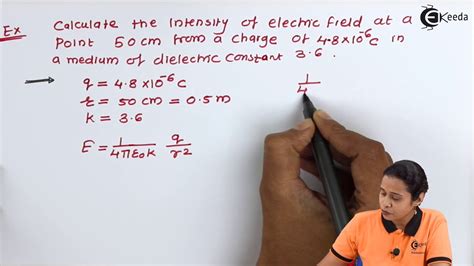 Ex Calculate the intensity of electric field at a
Point 50 cm from a charge of 4.8×10⁻⁶ C in
a medium of dielectric constant 3.6.
q = 4.8×10⁻⁶ C
r = 50 cm = 0.5 m
K = 3.6
E = 1/4πε₀K q/r²
1/4
Ekeeda